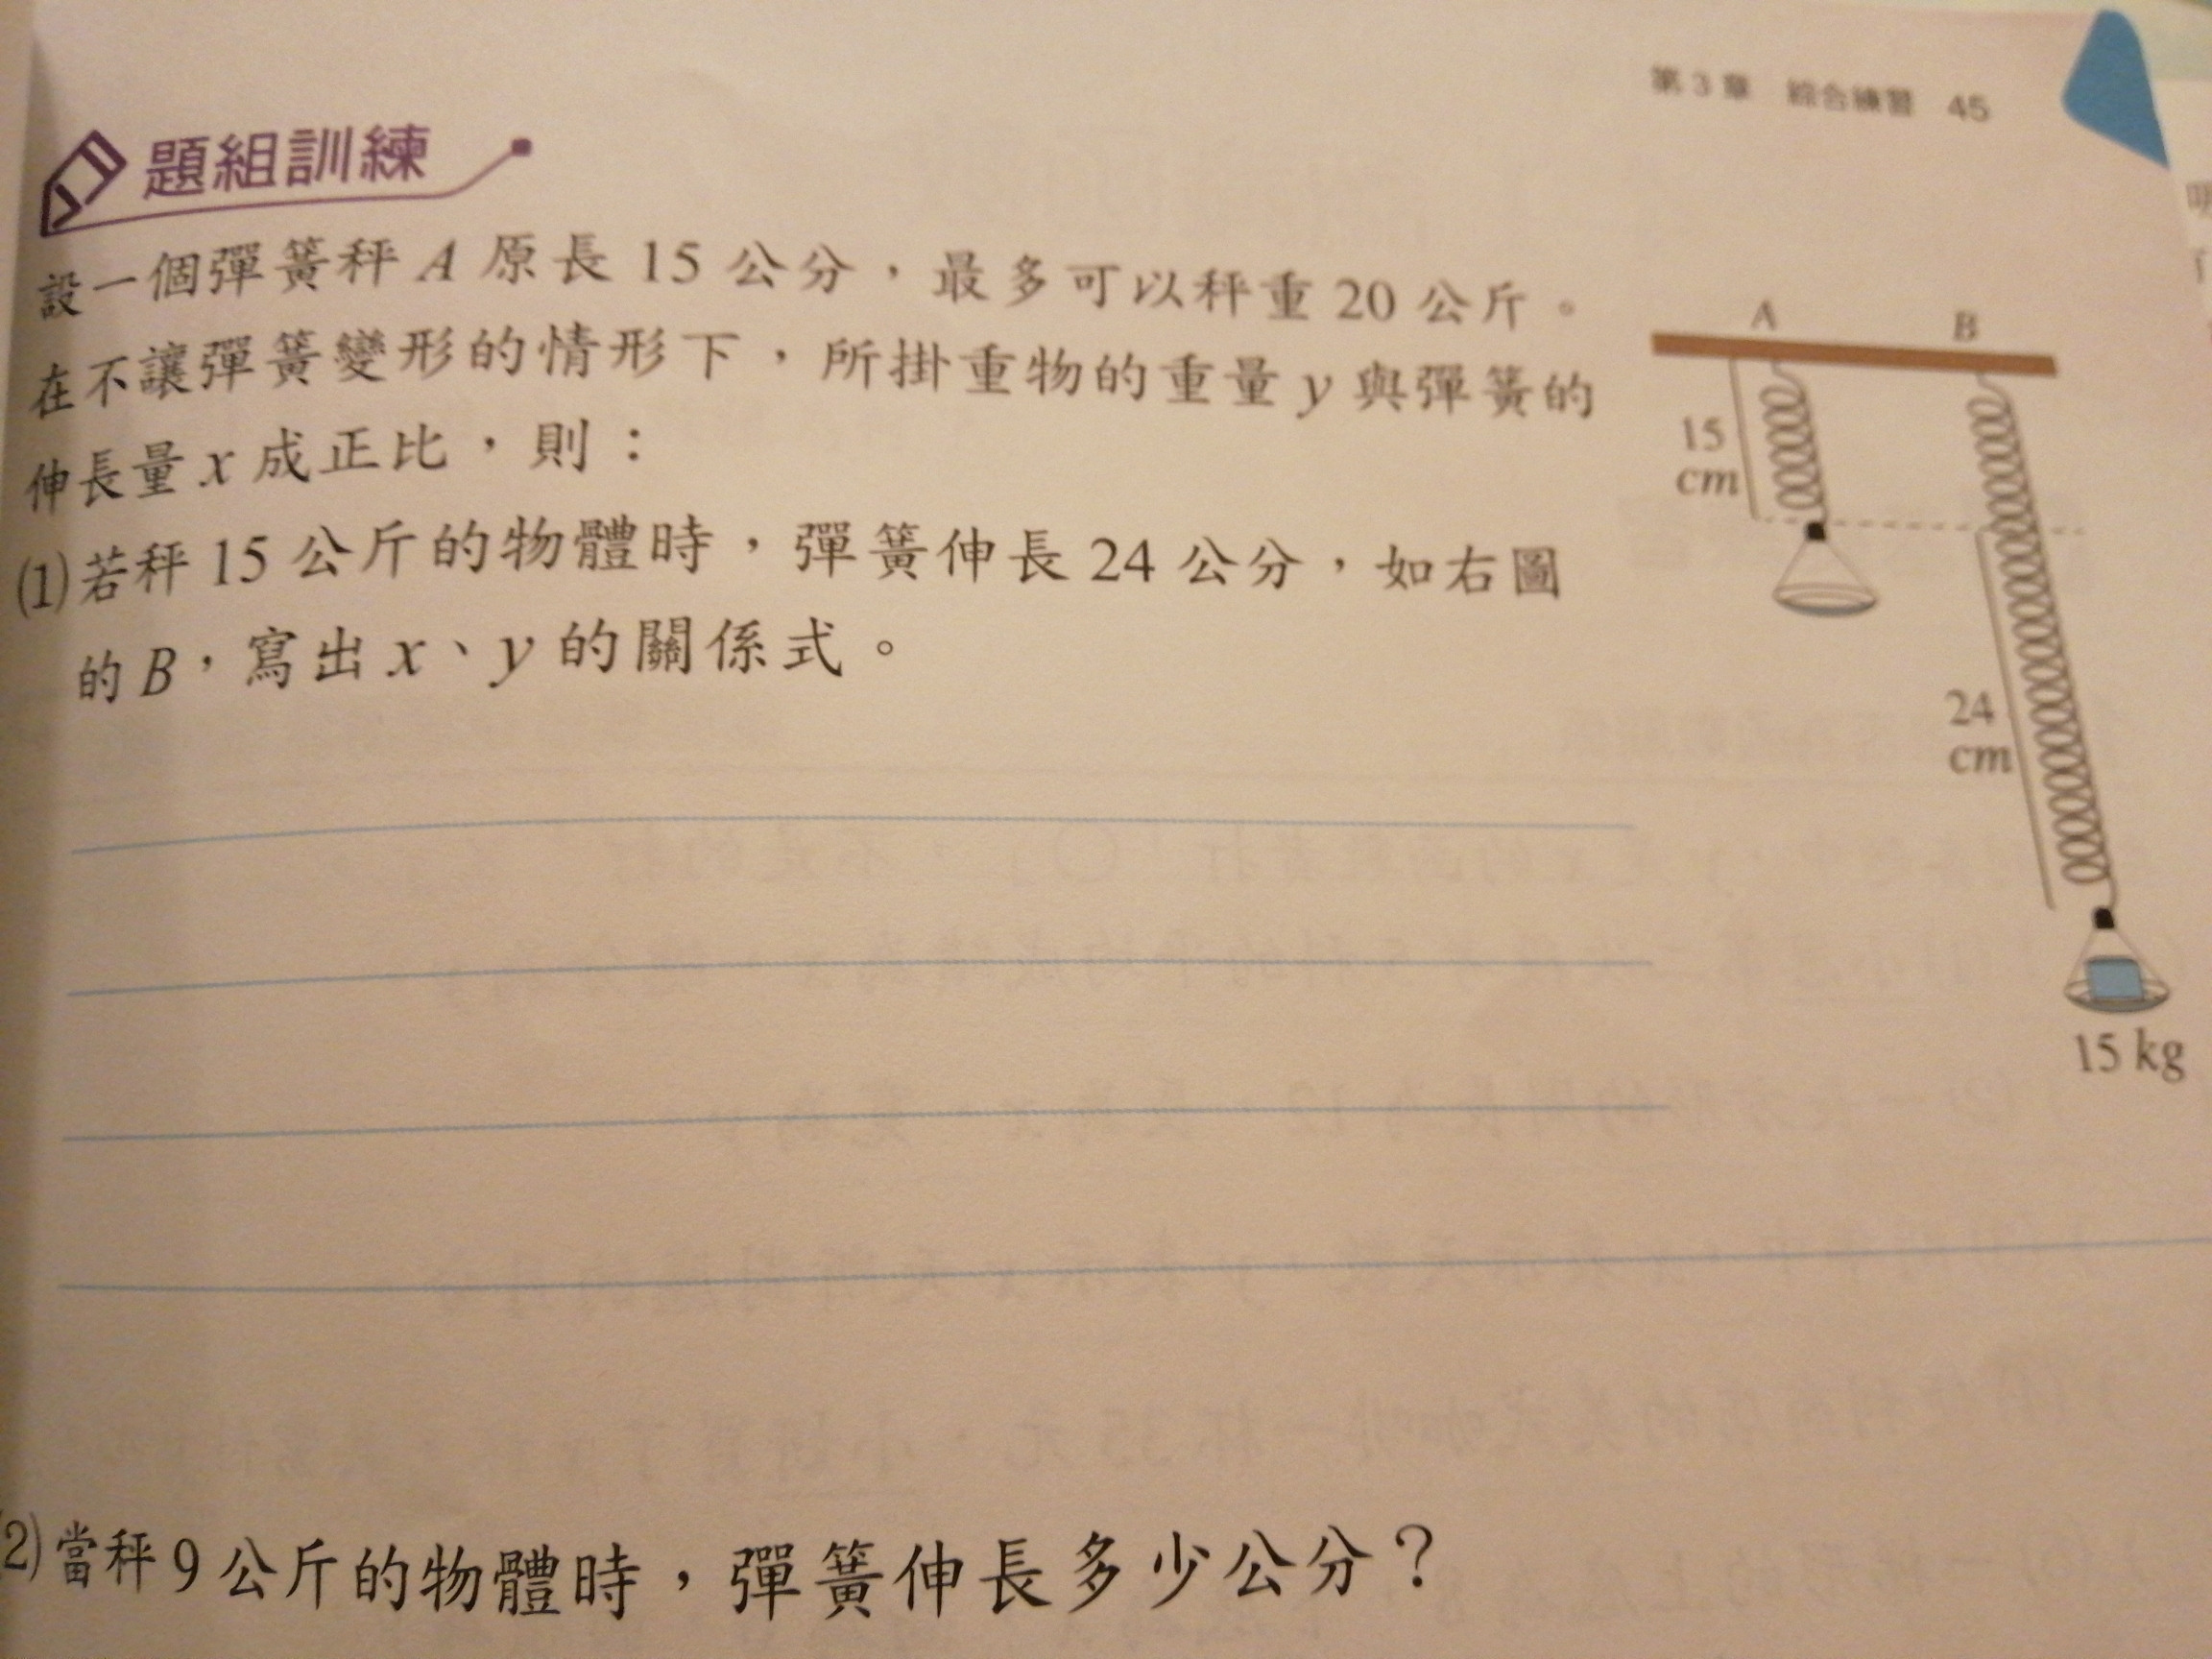 第 3 章 綜合練習 45
題組訓練
設一個彈簧秤 A 原長 15 公分，最多可以秤重 20 公斤。
在不讓彈簧變形的情形下，所掛重物的重量 y 與彈簧的
伸長量 x 成正比，則：
(1)若秤 15 公斤的物體時，彈簧伸長 24 公分，如右圖
的 B，寫出 x、y 的關係式。
A
B
15
cm
24
cm
15 kg
(2)當秤 9 公斤的物體時，彈簧伸長多少公分？